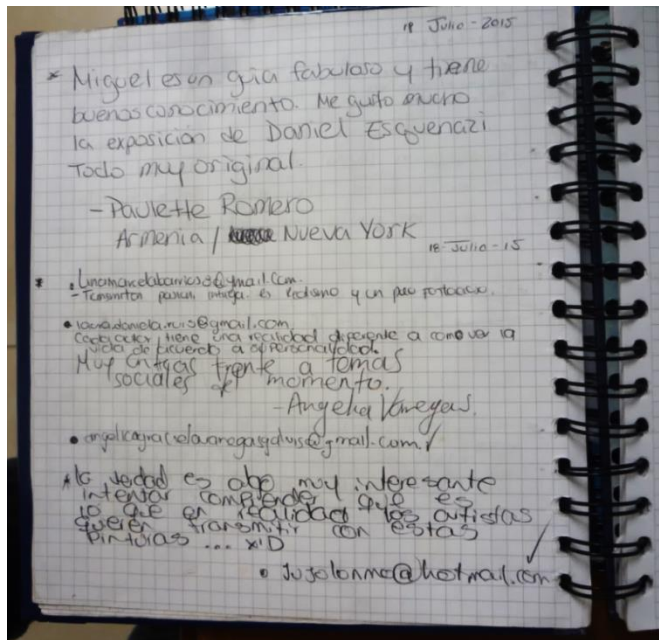 18 Julio - 2015
* Miguel es un guia fabuloso y tiene
buenos conocimiento. Me gusto mucho
la exposición de Daniel Esquenazi
Todo muy original.
- Paulette Romero
Armenia / Nueva York
18 - Julio - 15
- Transmiten pasion, intriga. es y un poco
Cada autor tiene una realidad diferente a como ver la
vida de acuerdo a su personalidad.
Muy criticas frente a temas
sociales del momento.
- Angelica Vanegas.
* la verdad es algo muy interesante
intentar comprender que es
lo que en realidad los artistas
queren transmitir con estas
pinturas ... x'D
• jujolonma@hotmail.com